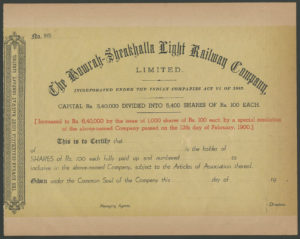 No.
The Howrah-Sheakhalla Light Railway Company,
LIMITED.
INCORPORATED UNDER THE INDIAN COMPANIES ACT VI OF 1882
CAPITAL Rs. 5,40,000 DIVIDED INTO 5,400 SHARES OF Rs. 100 EACH.
[Increased to Rs 6,40,000 by the issue of 1,000 shares of Rs. 100 each by a special resolution
of the above-named Company passed on the 13th day of February, 1900.]
This is to Certify that
of is the holder of
SHARES of Rs. 100 each fully paid up and numbered to
inclusive in the above-named Company, subject to the Articles of Association thereof.
Given under the Common Seal of the Company this day of 19
Managing Agents.
Directors